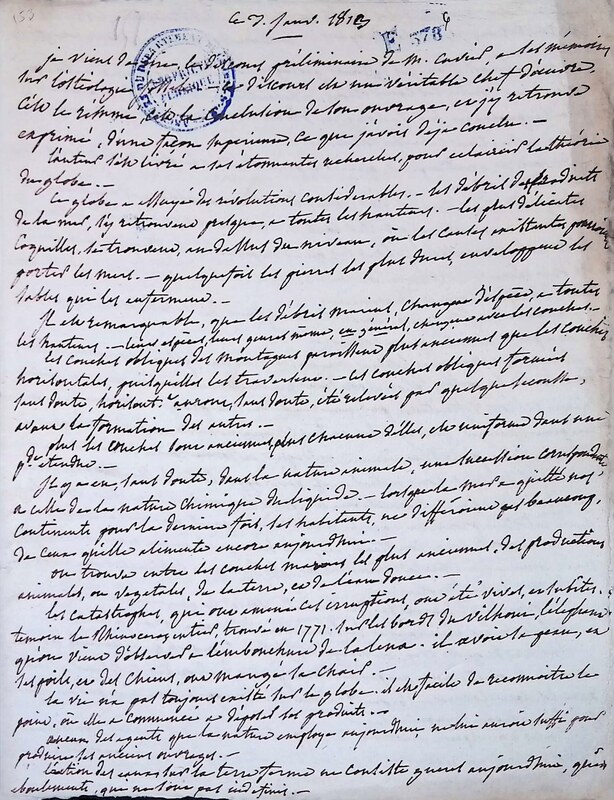 153
le 7. janv. 1813
E 378
je viens de lire, le Discours préliminaire de M. Cuvier, a ses mémoires
sur l'osteologie discours est une véritable chef d'oeuvre,
C'est le résumé, c'est la Conclusion de son ouvrage, et j'y retrouve
exprimé, d'une façon supérieure, ce que j'avois déja conclu. —
l'auteur s'est livré a ses étonnantes recherches, pour éclaircir la théorie
du globe. —
Ce globe a essuyé des révolutions considérables. — les débris des produits
de la mer, s'y retrouvent presque, a toutes les hauteurs. — les plus délicates
Coquilles, se trouvent, au dessus du niveau, où les causes existantes pourroient
porter les mers. — quelquefois les pierres les plus dures, enveloppent les
sables qui les enferment. —
Il est remarquable, que les débris marins, changent d'espèce, a toutes
les hauteurs. — leurs espèces, leurs genres même, en général, changent avec les couches. —
les couches obliques des montagnes paroissent plus anciennes que les couches
horisontales, puisqu'elles les traversent. — les couches obliques formées
sans doute, horisont.t auront, sans doute, été relevées par quelque secousse,
avant la formation des autres. —
plus les couches sont anciennes, plus chacune d'elles, est uniforme dans une
g.de étendue. —
Il y a eu, sans doute, dans la nature animale, une succession correspondante
a celle de la nature chimique du liquide. — lorsque la mer a quitté nos
Continents pour la derniere fois, ses habitants, ne différoient pas beaucoup,
de ceux qu'elle alimente encore aujourd'hui. —
on trouve entre les couches marines les plus anciennes, des productions
animales, ou vegetales, de la terre, et de l'eau douce. —
les catastrophes, qui ont amené ces irruptions, ont été vives, et subites.
temoin le Rhinoceros entier, trouvé en 1771. sur les bords du Vilhoui, l'éléphant
qu'on vient d'observer a l'embouchure de la Lena. il avoit sa peau, et
ses poils, et des chiens, ont mangé sa chair. —
la vie n'a pas toujours existé sur le globe. il est facile de reconnoitre le
point, où elle a Commencé a déposer ses produits. —
aucun des agents que la nature employe aujourd'hui, ne lui auroit suffi pour
produire ses anciens ouvrages. —
l'action des eaux sur la terre ferme ne Consiste gueres aujourd'hui, qu'en
eboulements, qui ne sont pas indefinis. —